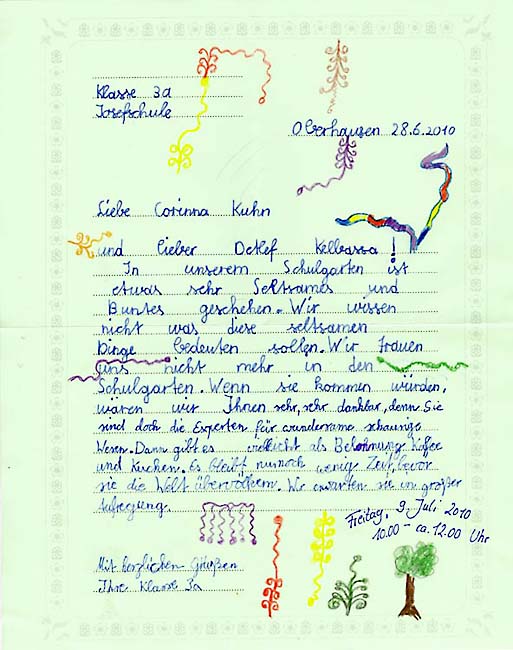 Klasse 3a
Josefschule
Oberhausen 28.6.2010
Liebe Corinna Kuhn
und lieber Detlef Kelbassa!
In unserem Schulgarten ist
etwas sehr Seltsames und
Buntes geschehen. Wir wissen
nicht was diese seltsamen
Dinge bedeuten sollen. Wir trauen
uns nicht mehr in den
Schulgarten. Wenn sie kommen würden,
wären wir Ihnen sehr, sehr dankbar, denn Sie
sind doch die Experten für wundersame schaurige
Wesen. Dann gibt es vielleicht als Belohnung Kaffee
und Kuchen. Es bleibt nurnoch wenig Zeit, bevor
sie die Welt übervölkern. Wir erwarten sie in großer
Aufregung.
Freitag, 9. Juli 2010
10.00 - ca. 12.00 Uhr
Mit herzlichen Grüßen
Ihre Klasse 3a